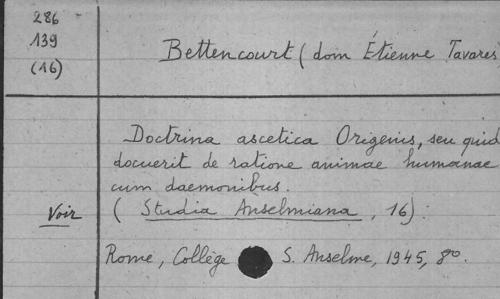 286
139
(16)
Bettencourt (dom Étienne Tavares)
Doctrina ascetica Origenis, seu quid
docuerit de ratione animae humanae
cum daemonibus.
Voir
(Studia Anselmiana, 16):
Rome, Collège S. Anselme, 1945, 8º.